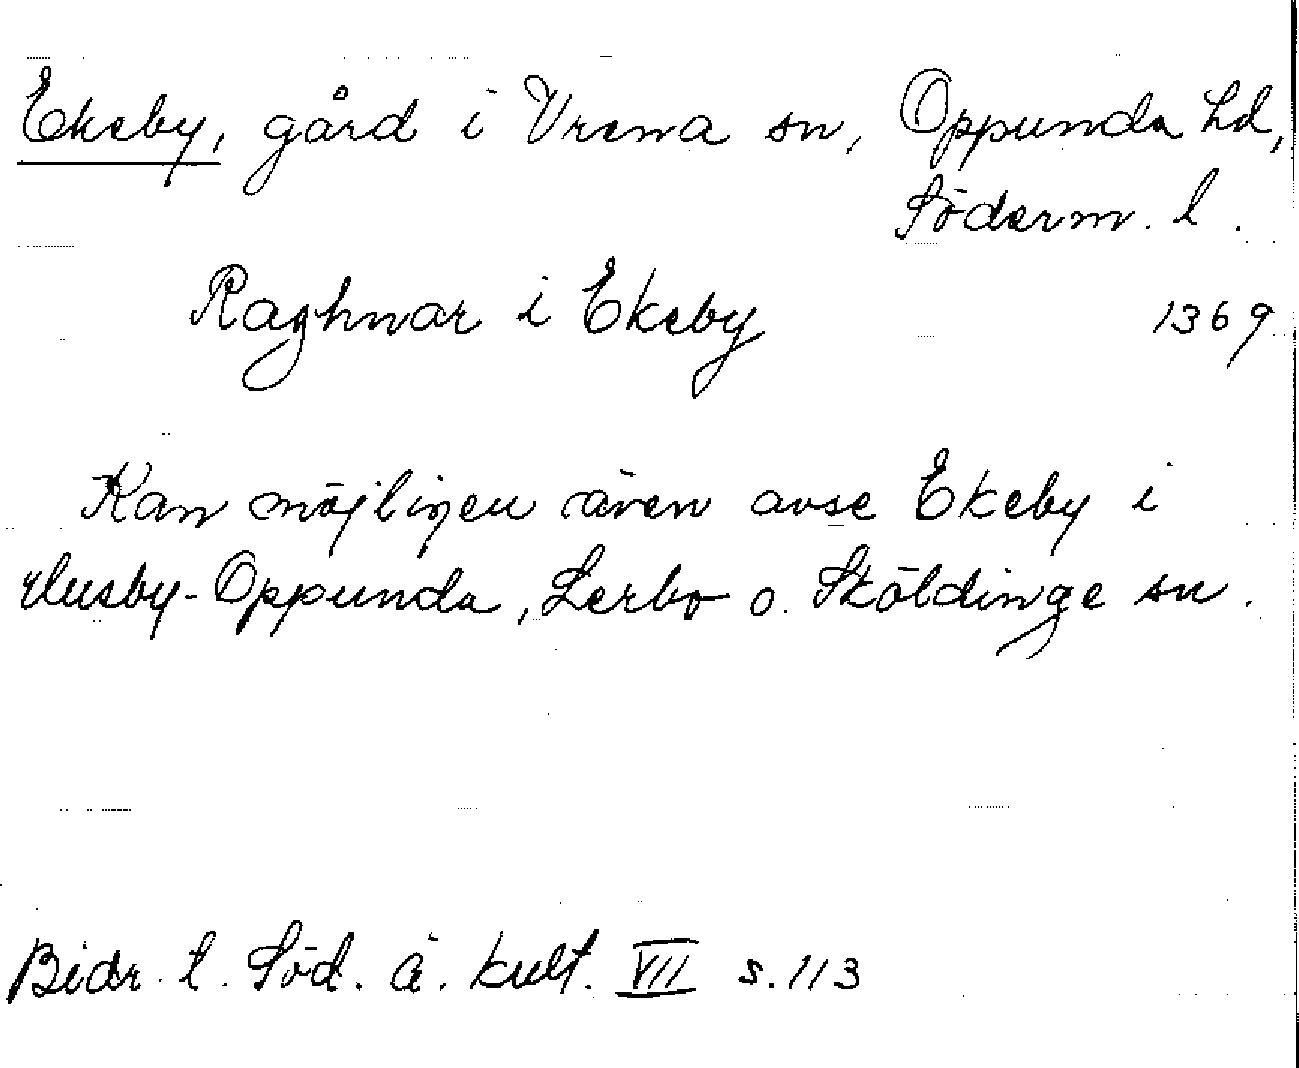 Ekeby, gård i Vrena sn, Oppunda hd,
Söderm. l.
Raghnar i Ekeby 1369
Kan möjligen även avse Ekeby i
Husby-Oppunda, Lerbo o. Sköldinge sn.
Bidr. t. Söd. ä. kult. VII s. 113